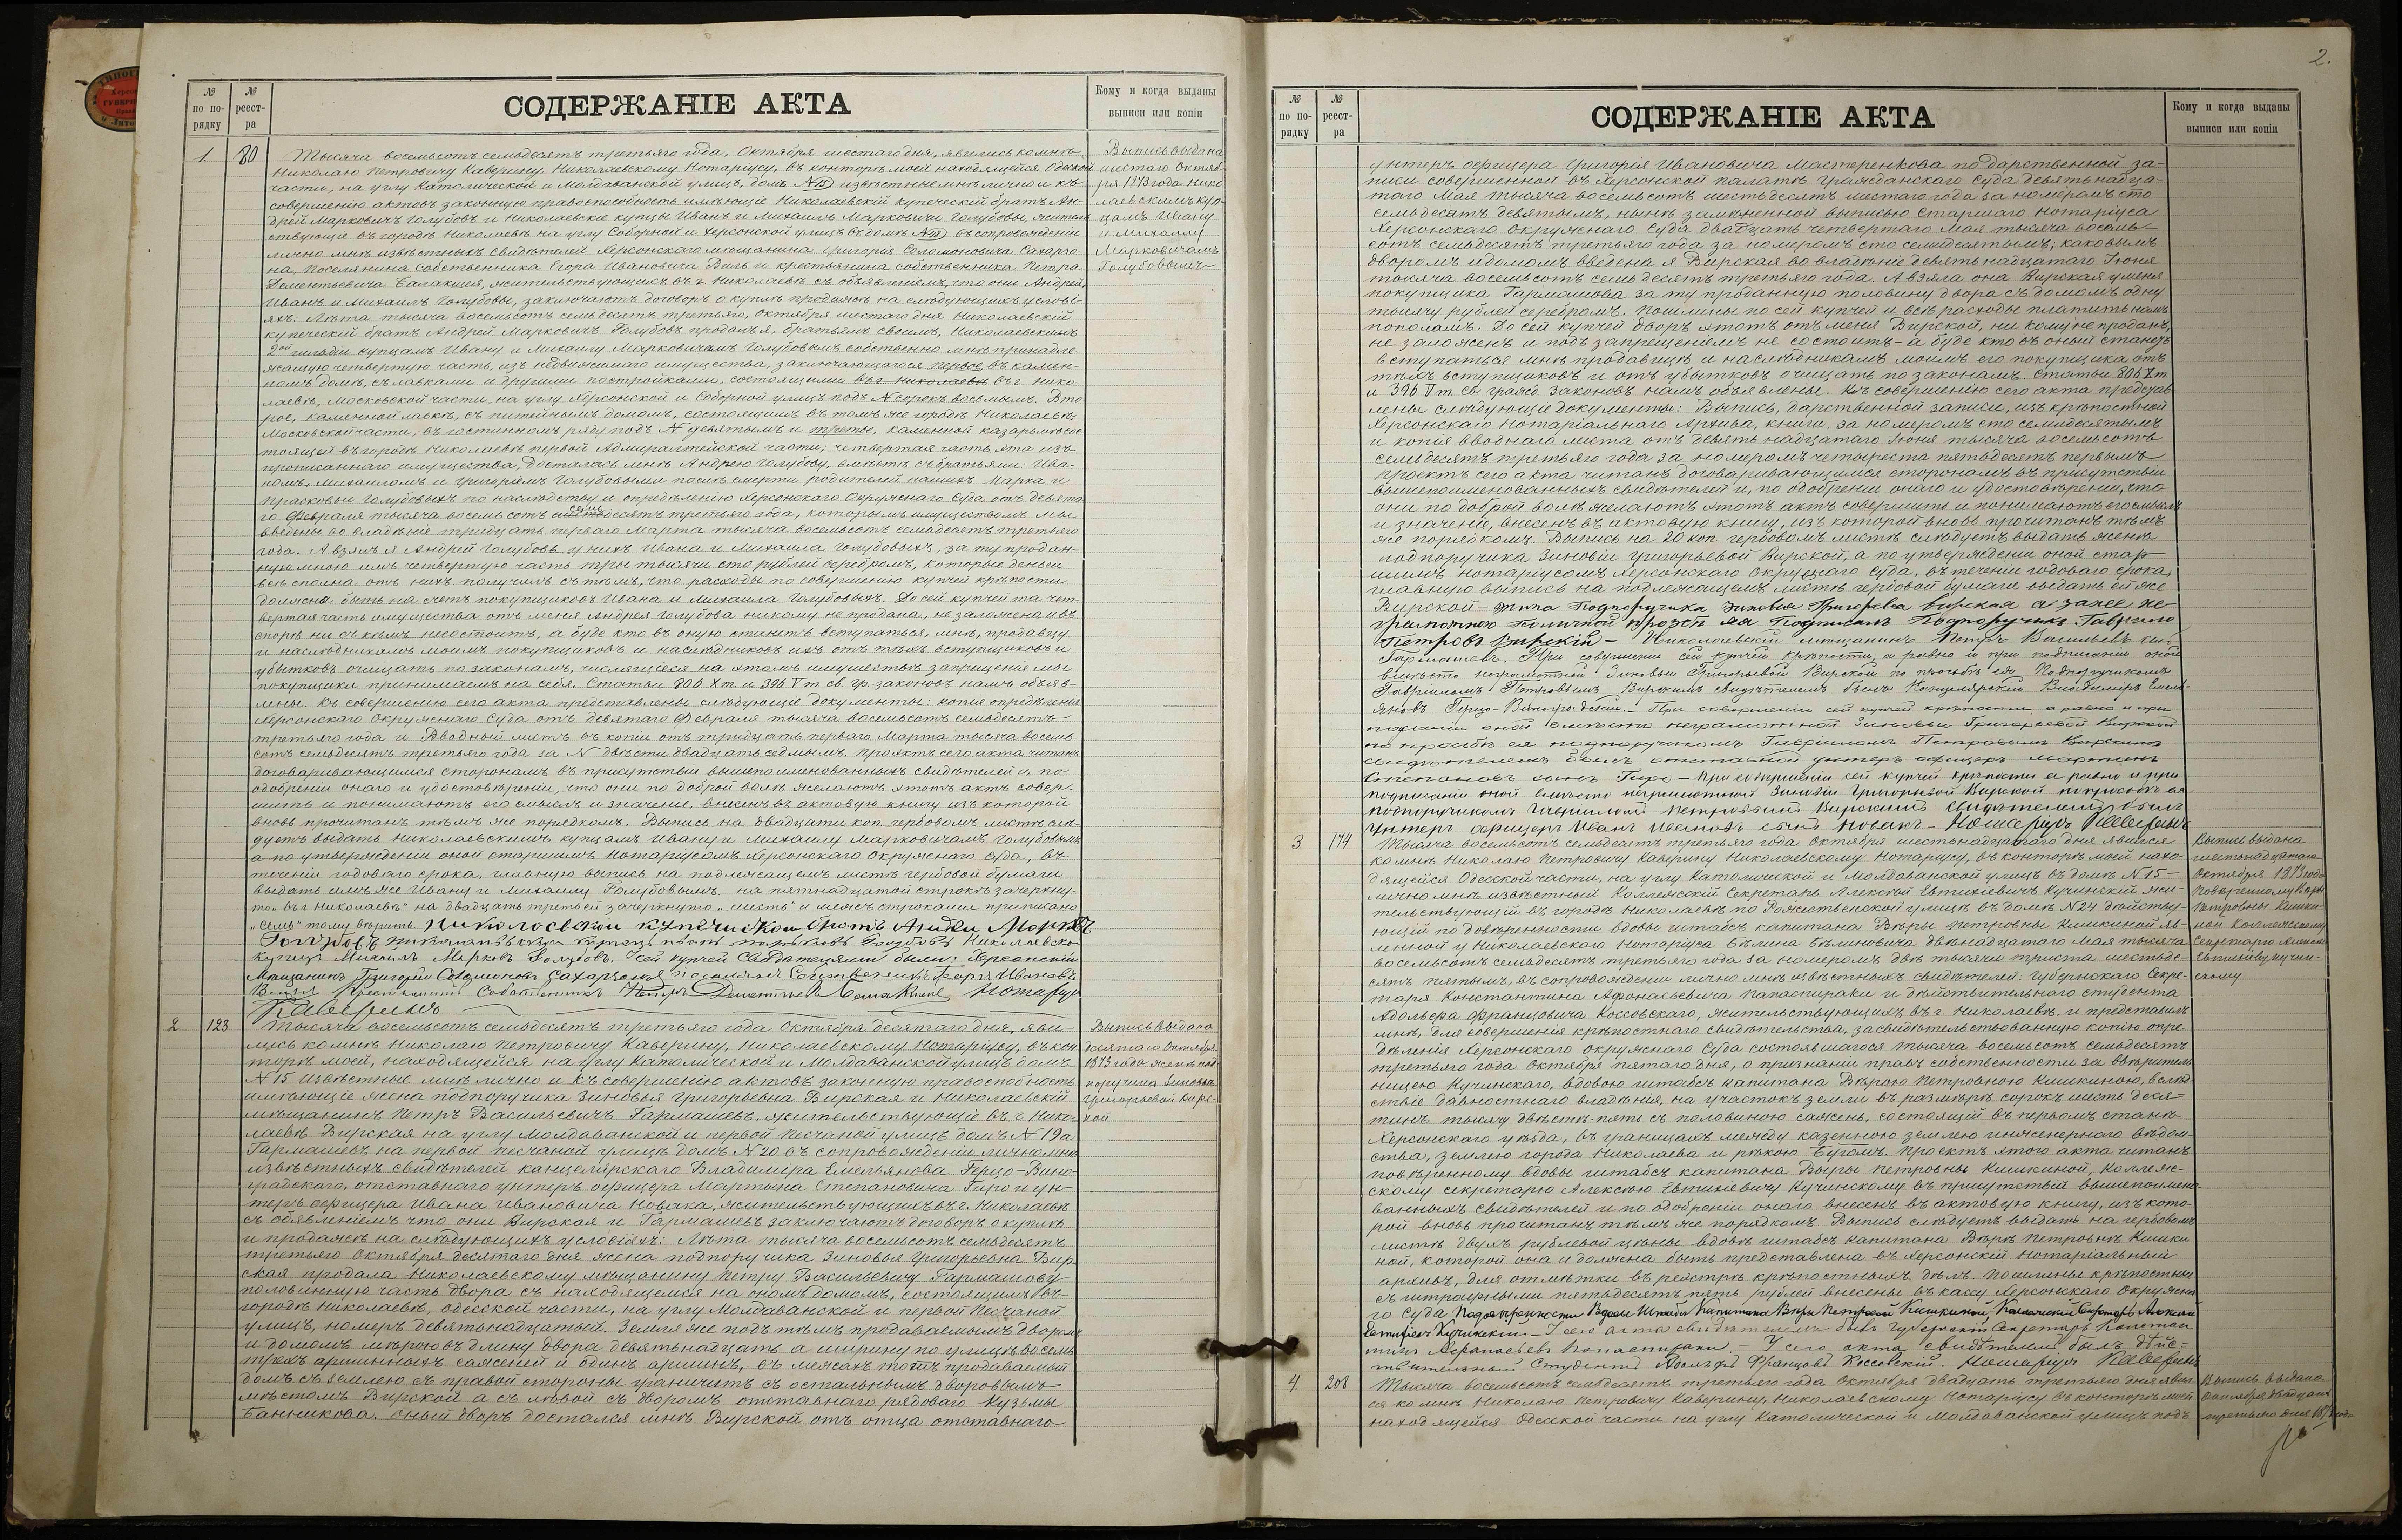 2.
№ по по-рядку
№ реест-ра
СОДЕРЖАНІЕ АКТА
Кому и когда выданы выписи или копіи
1. 80
Тысяча восемьсотъ семьдесятъ третьяго года, Октября шестаго дня, явились ко мнѣ
Николаю Петровичу Каверину, Николаевскому Нотаріусу, въ конторѣ моей находящейся Одесской
части, на углу Католической и Молдаванской улицъ, домъ №15 извѣстные мнѣ лично и къ
совершенію актовъ законную правоспособность имѣющіе Николаевскій купеческій братъ Ан-
дрей Марковичъ Голубовъ и Николаевскіе купцы Иванъ и Михаилъ Марковичи Голубовы, житель
ствующіе въ городѣ Николаевѣ на углу Соборной и Херсонской улицъ въ домѣ въ сопровожденіи
лично мнѣ извѣстныхъ свидѣтелей Херсонскаго мѣщанина Григорія Соломоновича Сахарго-
на, Поселянина собственника Егора Ивановича Виль и крестьянина собственника Петра
Дементьевича Балакшея, жительствующихъ въ г. Николаевѣ съ объявленіемъ, что они Андрей,
Иванъ и Михаилъ Голубовы, заключаютъ договоръ о куплѣ продажѣ на слѣдующихъ услові-
яхъ: Лѣта тысяча восемьсотъ семьдесятъ третьяго, Октября шестаго дня Николаевскій
купеческій братъ Андрей Марковичъ Голубовъ продалъ я, братьямъ своимъ, Николаевскимъ
2ой гильдіи купцамъ Ивану и Михаилу Марковичамъ Голубовымъ собственно мнѣ принадле-
жащую четвертую часть, изъ недвижимаго имущества, заключающагося первое, въ камен-
номъ домѣ, съ лавками и другими постройками, состоящими въ г. Николаевѣ въ г. Нико-
лаевѣ, Московской части, на углу Херсонской и Соборной улицъ подъ № сорокъ восьмымъ. Вто
рое, каменной лавкѣ, съ питейнымъ домомъ, состоящимъ въ томъ же городѣ Николаевѣ
Московской части, въ гостинномъ ряду подъ № девятымъ и третье, каменной казармѣ сос
тоящей въ городѣ Николаевѣ первой Адмиралтейской части, четвертая часть эта изъ
прописаннаго имущества, досталась мнѣ Андрею Голубову, вмѣстѣ съ братьями: Ива-
номъ, Михаиломъ и Григоріемъ Голубовыми послѣ смерти родителей нашихъ Марка и
Прасковьи Голубовыхъ по наслѣдству и опредѣленію Херсонскаго Окружнаго Суда отъ девята
го Февраля тысяча восемьсотъ семьдесятъ третьяго года, которымъ имуществомъ мы
введены во владѣніе тридцать перваго Марта тысяча восемьсотъ семьдесятъ третьяго
года. А взялъ я Андрей Голубовъ у нихъ Ивана и Михаила Голубовыхъ, за ту продан-
ную мною имъ четвертую часть три тысячи сто рублей серебромъ, которые деньги
всѣ сполна отъ нихъ получилъ съ тѣмъ, что расходы по совершенію купчей крѣпости
должны быть на счетъ покупщиковъ Ивана и Михаила Голубовыхъ. До сей купчей та чет-
вертая часть имущества отъ меня Андрея Голубова никому не продана, не заложена и въ
спорѣ ни съ кѣмъ несостоитъ, а буде кто въ оную станетъ вступаться, мнѣ, продавцу
и наслѣдникамъ моимъ покупщиковъ и наслѣдниковъ ихъ отъ тѣхъ вступщиковъ и
убытковъ очищать по законамъ, числящіеся на этомъ имуществѣ запрещенія мы
покупщики принимаемъ на себя. Статьи 806 X т. и 396 V т. св. гр. законовъ намъ объяв-
лены. Къ совершенію сего акта представлены слѣдующіе документы: копія опредѣленія
Херсонскаго Окружнаго Суда отъ девятаго Февраля тысяча восемьсотъ семьдесятъ
третьяго года и Вводный листъ въ копіи отъ тридцать перваго Марта тысяча восемь
сотъ семьдесятъ третьяго года за № двѣсти двадцать седьмымъ. Проэктъ сего акта читанъ
договаривающимся сторонамъ въ присутствіи вышепоименованныхъ свидѣтелей и по
одобреніи онаго и удостовѣреніи, что они по доброй волѣ желаютъ этотъ актъ совер-
шить и понимаютъ его смыслъ и значеніе, внесенъ въ актовую книгу изъ которой
вновь прочитанъ тѣмъ же порядкомъ. Выпись на двадцати коп. гербовомъ листѣ слѣ-
дуетъ выдать Николаевскимъ купцамъ Ивану и Михаилу Марковичамъ Голубовымъ
а по утвержденіи оной старшимъ Нотаріусомъ Херсонскаго Окружнаго Суда, въ
теченіи годоваго срока, главную выпись на подлежащемъ листѣ гербовой бумаги
выдать имъ же Ивану и Михаилу Голубовымъ. на пятнадцатой строкѣ зачеркну-
то „въ г. Николаевѣ" на двадцать третьей зачеркнуто „шесть" и межъ строками приписано
„семь" тому вѣрить. Николаевскои купечискои братъ Андри Марковъ
Голубовъ
купецъ Михаилъ Марковъ Голубовъ. У сей купчей Свидѣтелями были: Херсонскій
Мѣщанинъ Григорій Соломоновъ Сахаргонъ поселянинъ Собственникъ Егоръ Ивановъ
Виль Крестьянинъ Собственникъ Петръ Дементьевъ Нотаріусъ
Каверинъ
Выпись выдана
шестаго Октяб-
ря 1873 года Нико
лаевскимъ куп-
цамъ Ивану
и Михаилу
Марковичамъ
Голубовымъ
2 123
Тысяча восемьсотъ семьдесятъ третьяго года Октября десятаго дня, яви-
лись ко мнѣ Николаю Петровичу Каверину, Николаевскому Нотаріусу, въ кон
торѣ моей, находящейся на углу Католической и Молдаванской улицъ домъ
№15 извѣстные мнѣ лично и къ совершенію актовъ законную правоспособность
имѣющіе жена подпоручика Зиновья Григорьевна Вирская и Николаевскій
мѣщанинъ Петръ Васильевичъ Гармашевъ, жительствующіе въ г. Нико-
лаевѣ Вирская на углу Молдаванской и первой Песчаной улицъ домъ №19 а
Гармашевъ на первой песчаной улицѣ домъ №20 въ сопровожденіи лично мнѣ
извѣстныхъ свидѣтелей канцелярскаго Владиміра Емельянова Герцо-Вино-
градскаго, отставнаго унтеръ офицера Мартына Степановича Гиро и ун-
теръ офицера Ивана Ивановича Новака, жительствующихъ въ г. Николаевѣ
съ объявленіемъ что они Вирская и Гармашевъ заключаютъ договоръ о куплѣ
и продажѣ на слѣдующихъ условіяхъ: Лѣта тысяча восемьсотъ семьдесятъ
третьяго Октября десятаго дня жена подпоручика Зиновья Григорьевна Вир
ская продала Николаевскому мѣщанину Петру Васильевичу Гармашову
половинную часть двора съ находящемся на ономъ домомъ, состоящимъ въ
городѣ Николаевѣ, одесской части, на углу Молдаванской и первой Песчаной
улицъ, номеръ девятьнадцатый. Земля же подъ тѣмъ продаваемымъ дворомъ
и домомъ мѣрою въ длину двора девятьнадцать а ширину по улицѣ восемь
трехъ аршинныхъ саженей и одинъ аршинъ, въ межахъ тотъ продаваемый
домъ съ землею съ правой стороны граничитъ съ остальнымъ дворовымъ
мѣстомъ Вирской а съ лѣвой съ дворомъ отставнаго рядоваго Кузьмы
Банникова. Оный дворъ достался мнѣ Вирской отъ отца отставнаго
Выпись выдана
десятаго Октября
1873 года женѣ под-
поручика Зиновьи
Григорьевой Вирс-
кой
№ по по-рядку
№ реест-ра
СОДЕРЖАНІЕ АКТА
Кому и когда выданы выписи или копіи
унтеръ офицера Григорія Ивановича Мастеренкова по дарственной за-
писи совершенной въ Херсонской палатѣ гражданскаго Суда девятьнадца-
таго Мая тысяча восемьсотъ шестьдесятъ шестаго года за номеромъ сто
семьдесятъ девятымъ, нынѣ замѣненной выписью Старшаго Нотаріуса
Херсонскаго Окружнаго Суда двадцать четвертаго Мая тысяча восемь-
сотъ семьдесятъ третьяго года за номеромъ сто семидесятымъ; каковымъ
дворомъ и домомъ введена я Вирская во владѣніе девятьнадцатаго Іюня
тысяча восемьсотъ семьдесятъ третьяго года. А взяла она Вирская у меня
покупщика Гармашова за ту проданную половину двора съ домомъ одну
тысячу рублей серебромъ. Пошлины по сей купчей и всѣ расходы платить намъ
пополамъ. До сей купчей дворъ этотъ отъ меня Вирской, ни кому не проданъ,
не заложенъ и подъ запрещеніемъ не состоитъ - а буде кто въ оный станетъ
вступаться мнѣ продавицѣ и наслѣдникамъ моимъ его покупщика отъ
тѣхъ вступщиковъ и отъ убытковъ очищать по законамъ. Статьи 806 X т.
и 396 V т. Св. гражд. Законовъ намъ объявлены. Къ совершенію сего акта представ
лены слѣдующіе документы: Выпись, дарственной записи, изъ крѣпостной
Херсонскаго Нотаріальнаго Архива, книги, за номеромъ сто семидесятымъ
и копія вводнаго листа отъ девятьнадцатаго Іюня тысяча восемьсотъ
семьдесятъ третьяго года за номеромъ четыреста пятьдесятъ первымъ
проектъ сего акта читанъ договаривающимся сторонамъ въ присутствіи
вышепоименованныхъ свидѣтелей и, по одобреніи онаго и удостовѣреніи, что
они по доброй волѣ желаютъ этотъ актъ совершить и понимаютъ его смыслъ
и значеніе, внесенъ въ актовую книгу, изъ которой вновь прочитанъ тѣмъ
же порядкомъ. Выпись на 20 коп. гербовомъ листѣ слѣдуетъ выдать женѣ
подпоручика Зиновіи Григорьевой Вирской, а по утвержденіи оной стар
шимъ нотаріусомъ Херсонскаго Окружнаго Суда, въ теченіи годоваго срока,
главную выпись на подлежащемъ листѣ гербовой бумаги выдать ей же
Вирской - Подпоручика Зиновья Григорьева Вирская а занее не-
грамотною поличной прозбѣ ея подписалъ Подпоручикъ Гавріилъ
Петровъ Вирскій - Николаевскій мещанинъ Петръ Васильевъ
Гармашевъ. При совершеніи сей купчей крѣпости, а равно и при подписаніи оной
вмѣсто неграмотной Зиновьи Григорьевой Вирской по просьбѣ ея Подпоручикомъ
Гавріиломъ Петровымъ Вирскимъ свидѣтелемъ былъ Канцелярскій Владиміръ Емель-
яновъ Герцо-Виноградскій. При совершеніи сей купчей крѣпости а равно и при
подписаніи оной вмѣсто неграмотной Зиновьи Григорьевой Вирской
по просьбѣ ея подпоручикомъ Гавріиломъ Петровымъ Вирскимъ
свидѣтелемъ былъ отставной унтеръ офицеръ Мартынъ
Степановъ сынъ Гиро - При совершеніи сей купчей крѣпости а равно и при
подписаніи оной вмѣсто неграмотной Зиновіи Григорьевой Вирской попросьбѣ ея
подпоручикомъ Гавріиломъ Петровымъ Вирскимъ Свидѣтелемъ былъ
Унтеръ офицеръ Иванъ Ивановъ сынъ Новакъ - Нотаріусъ Каверинъ
3 174
Тысяча восемьсотъ семьдесятъ третьяго года Октября шестьнадцатаго дня явился
ко мнѣ Николаю Петровичу Каверину Николаевскому Нотаріусу, въ конторѣ моей нахо-
дящейся Одесской части, на углу Католической и Молдаванской улицъ въ домѣ №15 -
лично мнѣ извѣстный Коллежскій Секретарь Алексѣй Евтихіевичъ Кучинскій жи-
тельствующій въ городѣ Николаевѣ по Рождественской улицѣ въ домѣ №24 дѣйству-
ющій по довѣренности вдовы штабсъ капитана Вѣры Петровны Кишкиной яв-
ленной у Николаевскаго Нотаріуса Бѣлина Бѣлиновича двѣнадцатаго Мая тысяча
восемьсотъ семьдесятъ третьяго года за номеромъ двѣ тысячи триста шестьде-
сятъ пятымъ, въ сопровожденіи лично мнѣ извѣстныхъ свидѣтелей: Губернскаго Секре-
таря Константина Афонасьевича Папаспираки и дѣйствительнаго студента
Адольфа Францовича Коссовскаго, жительствующихъ въ г. Николаевѣ, и представилъ
мнѣ, для совершенія крѣпостнаго свидѣтельства, засвидѣтельствованную копію опре-
дѣленія Херсонскаго окружнаго Суда состоявшагося тысяча восемьсотъ семьдесятъ
третьяго года Октября пятаго дня, о признаніи правъ собственности за вѣритель
ницею Кучинскаго, вдовою штабсъ капитана Вѣрою Петровною Кишкиною, вслѣд-
ствіе давностнаго владѣнія, на участокъ земли въ размѣрѣ сорокъ шесть деся-
тинъ тысячу двѣстѣ пять съ половиною саженъ, состоящій въ первомъ станѣ
Херсонскаго уѣзда, въ границахъ между казенною землею инженернаго вѣдом-
ства, землею города Николаева и рѣкою Бугомъ. Проектъ этого акта читанъ
повѣренному вдовы штабсъ капитана Вѣры Петровны Кишкиной, Коллеж-
скому секретарю Алексѣю Евтихіевичу Кучинскому въ присутствіи вышепоимено
ванныхъ свидѣтелей и по одобреніи онаго внесенъ въ актовую книгу, изъ кото-
рой вновь прочитанъ тѣмъ же порядкомъ. Выпись слѣдуетъ выдать на гербовомъ
листѣ двухъ рублевой цѣны вдовѣ штабсъ капитана Вѣрѣ Петровнѣ Кишки
ной, которой она и должна быть представлена въ Херсонскій Нотаріальный
архивъ, для отмѣтки въ реэстрѣ крѣпостныхъ дѣлъ. Пошлины крѣпостныя
съ штрафными пятьдесятъ пять рублей внесены въ кассу Херсонскаго Окружна
го Суда. По довѣренности Вдовы Штабсъ Капитана Вѣры Петровой Кишкиной, Коллежскій Секретарь Алексѣй
Евтихіевъ Кучинскій. - У сего акта свидѣтелемъ былъ Губернскій Секретарь Констан
тинъ Афанасьевъ Папаспираки. - У сего акта свидѣтелемъ былъ дѣйс-
твительный Студентъ Адольфъ Францовъ Коссовскій. Нотаріусъ Каверинъ
Выпись выдана
шестьнадцатаго
Октября 1873 года
Повѣренному Вѣры
Петровны Кишки-
ной Коллежскому
Секретарю Алексѣю
Евтихіеву Кучин-
скому
4. 208
Тысяча восемьсотъ семьдесятъ третьяго года Октября двадцать третьяго дня явил
ся ко мнѣ Николаю Петровичу Каверину, Николаевскому Нотаріусу въ конторѣ моей
находящейся Одесской части на углу Католической и Молдаванской улицъ подъ
Выпись выдана
Октября двадцать
третьяго дня 1873 года